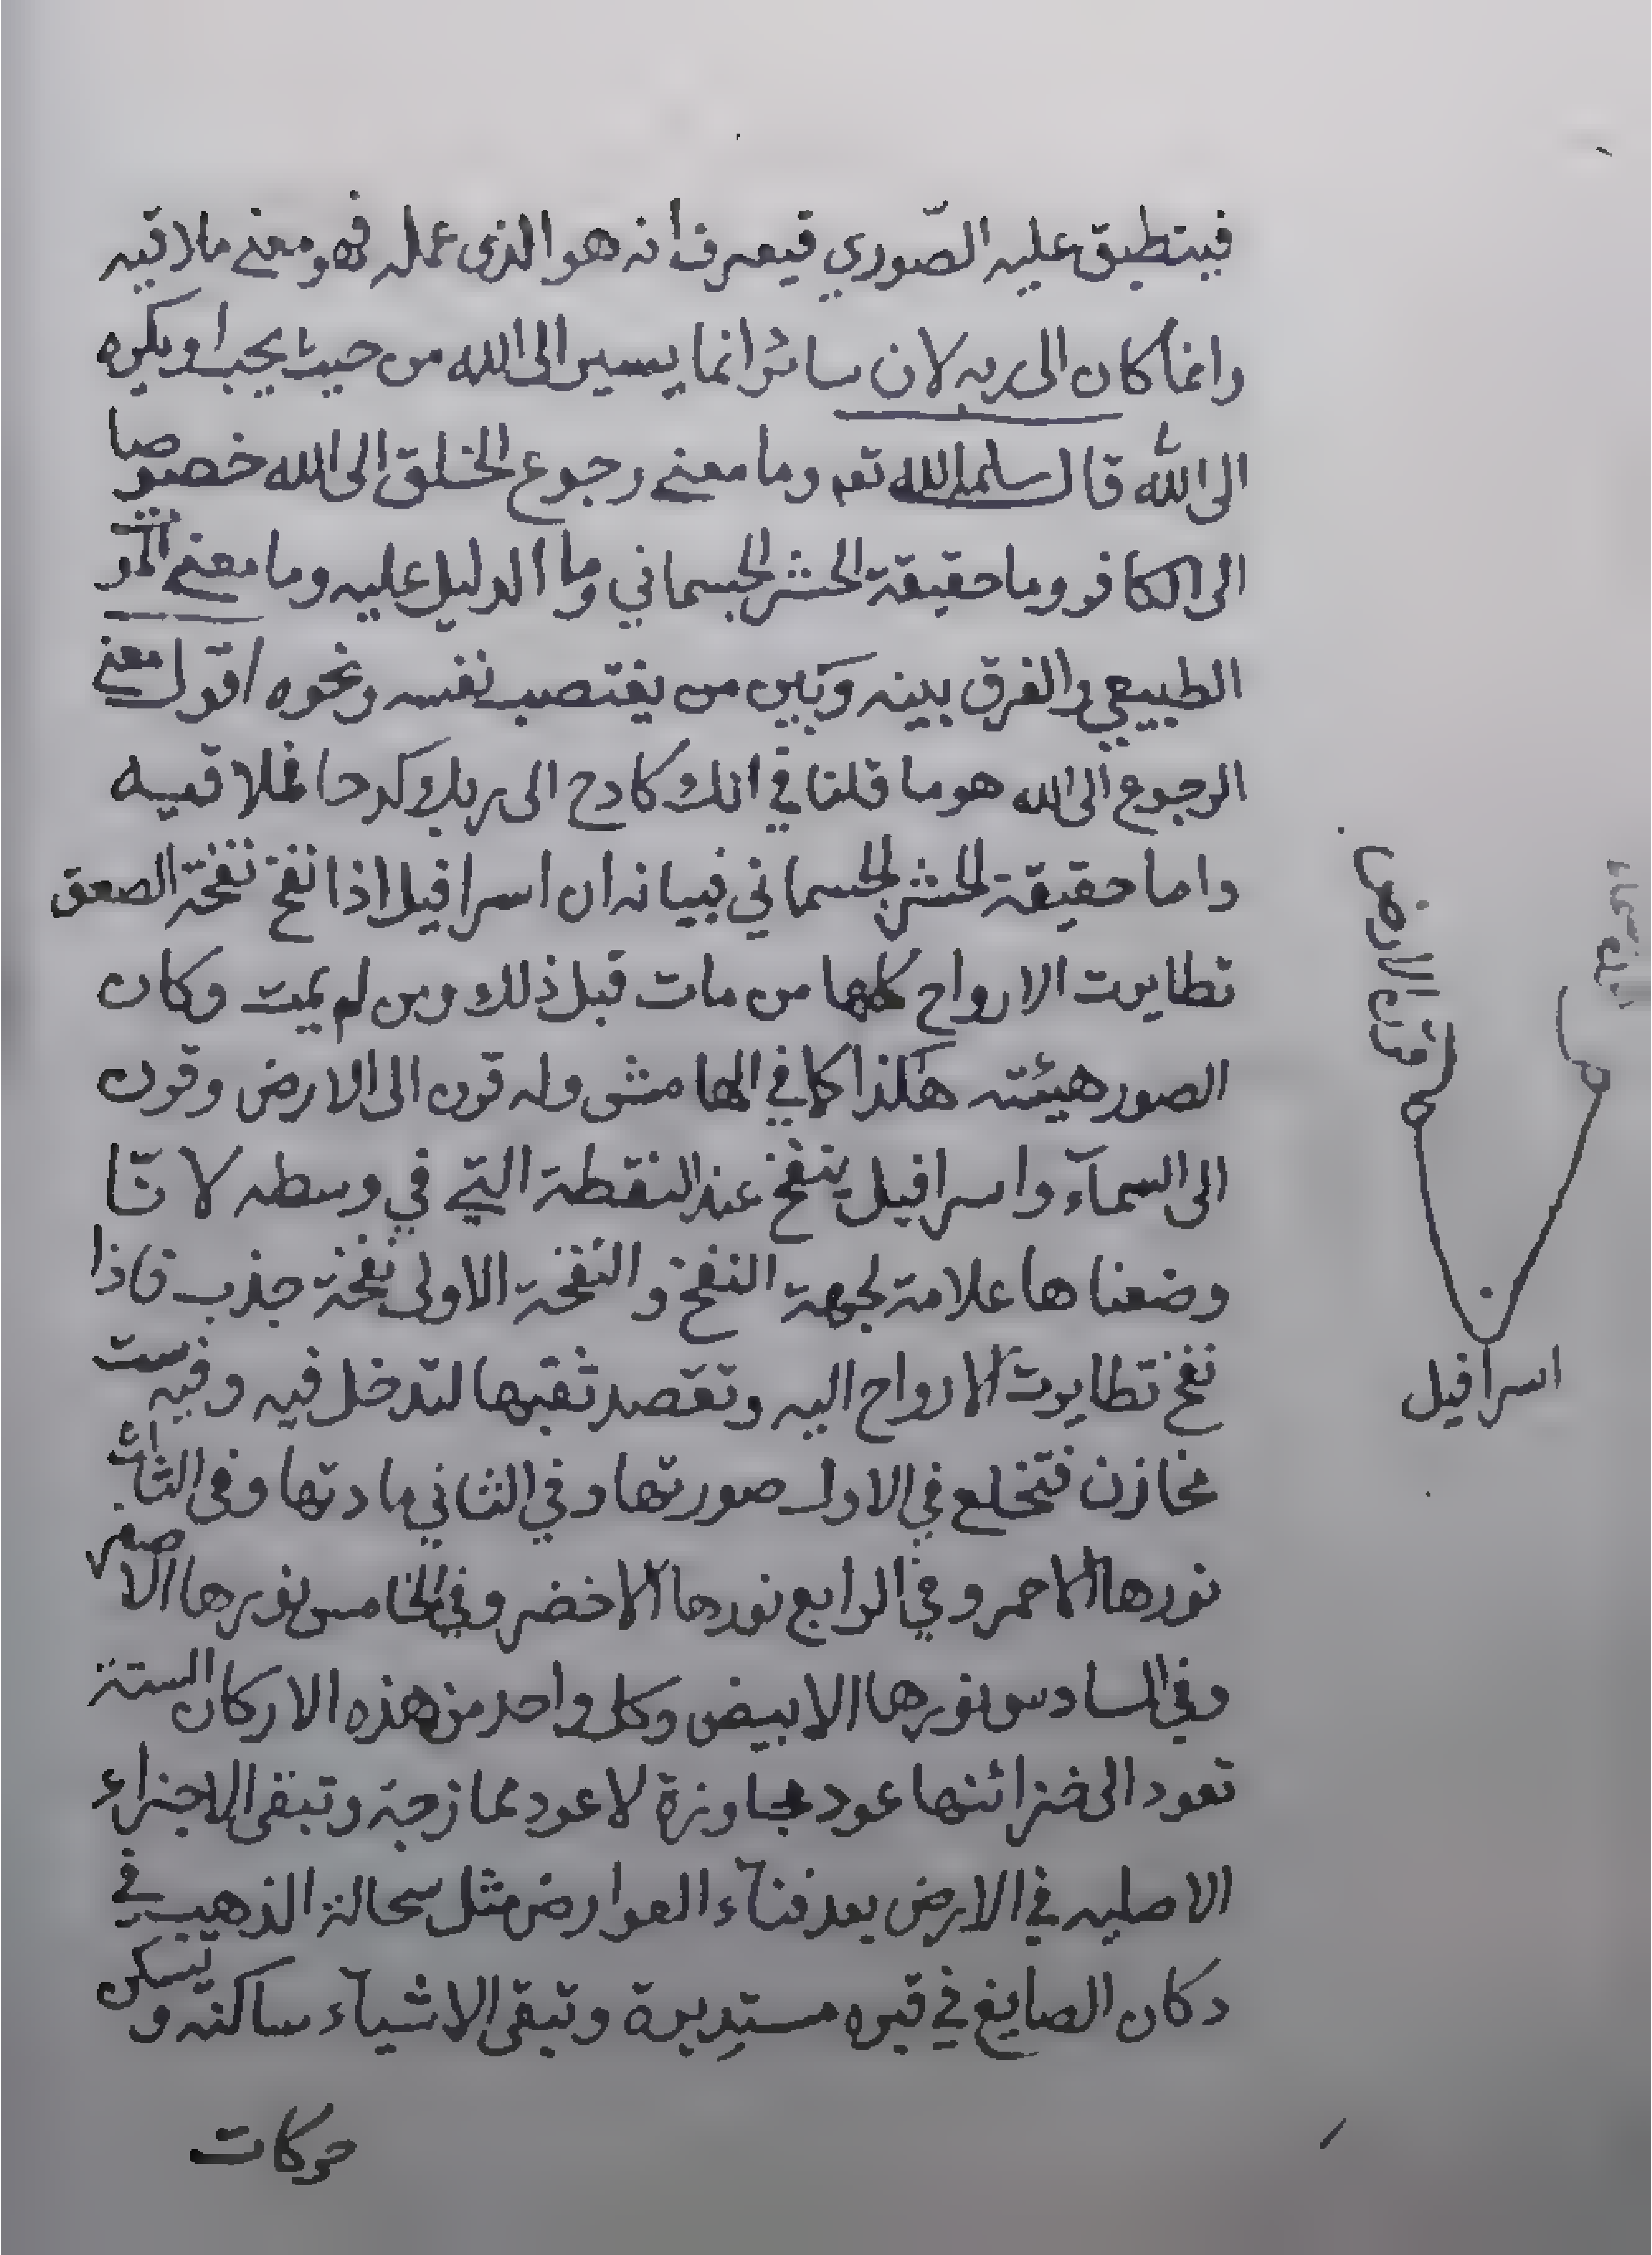 فينطبق عليه الصّوري فيعرف أنه هو الذى عمله فهو معنى ملاقيه
وانما كان الى ربه لان سائرا انما يسير الى الله من حيث يحب او يكره
الى الله قال سلمه الله تعم وما معنى رجوع الخلق الى الله خصوصا
الى الكافر وما حقيقة الحشر الجسماني وما الدليل عليه وما معنى
الطبيعي والفرق بينه وبين من يغتصب نفسه ونحوه اقول معنى
الرجوع الى الله هو ما قلنا في انك كادح الى ربك كدحا فملاقيه
واما حقيقة الحشر الجسماني فبيانه ان اسرافيل اذا نفخ نفخة الصعق
تطايرت الارواح كلها من مات قبل ذلك ومن لم يمت وكان
الصور هيئته هكذا كما في الهامش وله قرن الى الارض وقرن
الى السمآء واسرافيل ينفخ عند النقطة التي في وسطه لانّا
وضعناها علامة لجهة النفخ والنفخة الاولى نفخة جذب فاذا
نفخ تطايرت الارواح اليه وتقصد ثقبها لتدخل فيه وفيه ست
مخازن فتخلع في الاول صورتها وفي الثاني مادتها وفي الثالث
نورها الاحمر وفي الرابع نورها الاخضر وفي الخامس نورها الاصفر
وفي السادس نورها الابيض وكل واحد من هذه الاركان الستة
تعود الى خزائنها عود مجاورة لا عود ممازجة وتبقى الاجزاء
الاصليه في الارض بعد فنآء العوارض مثل سحالة الذهب في
دكان الصايغ في قبره مستديرة وتبقى الاشيآء ساكنه وتسكن
حركات
قرن الارض
اسرافيل